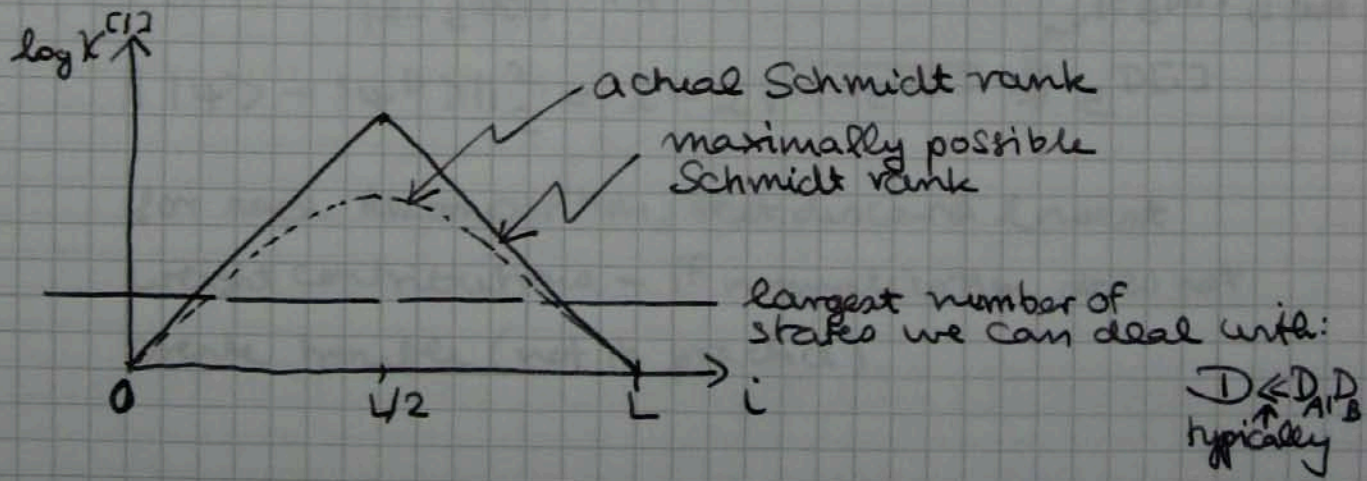 log χ^[i]
actual Schmidt rank
maximally possible
Schmidt rank
largest number of
states we can deal with:
0
L/2
L
i
D ≪ D_A, D_B
↑
typically